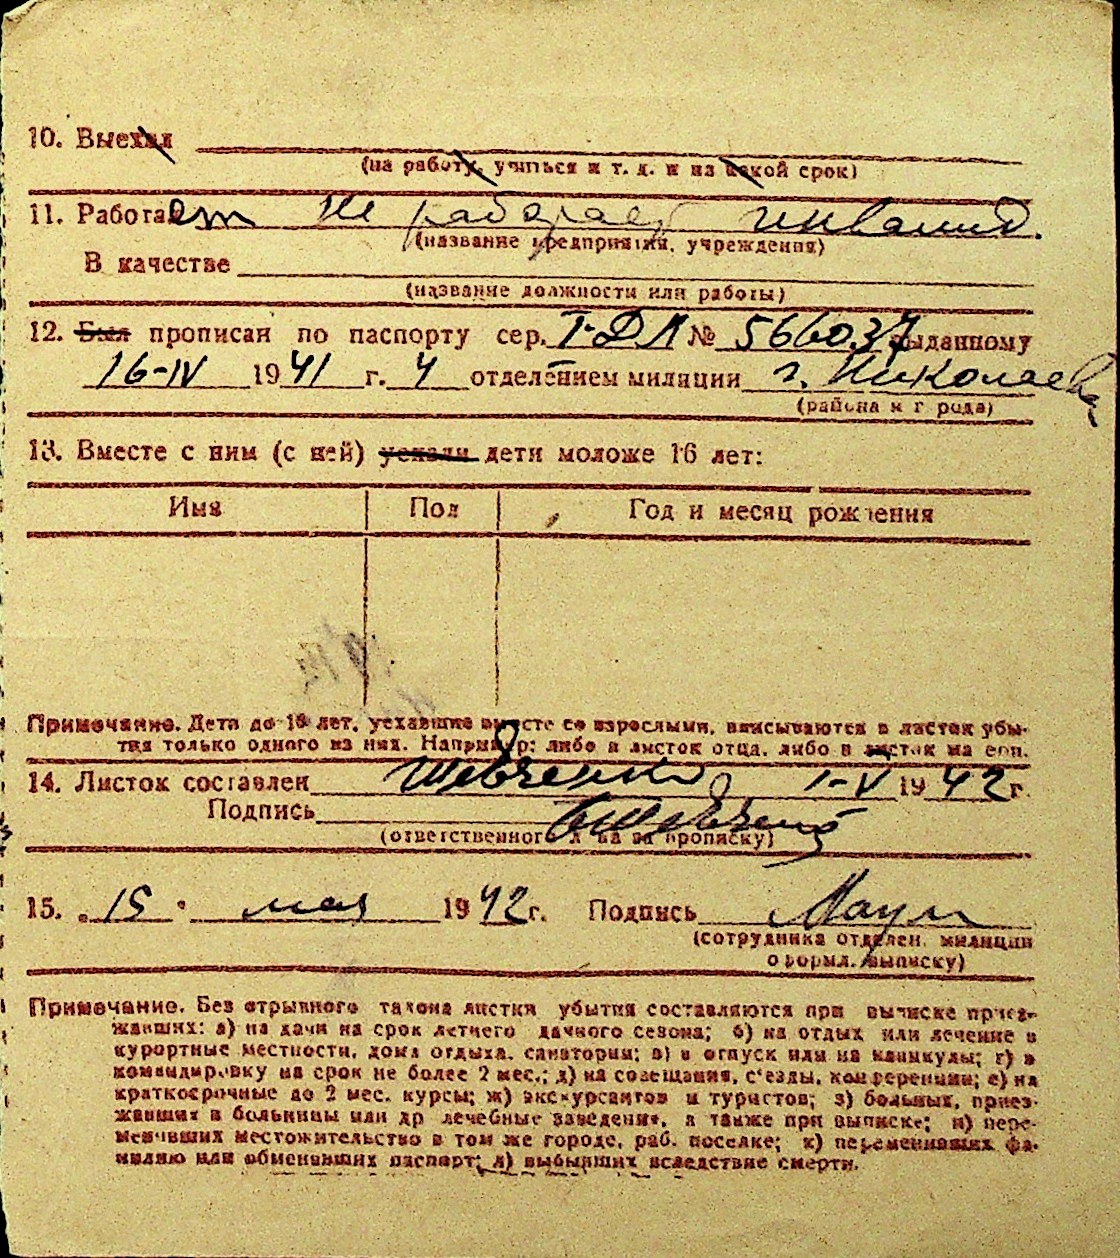 10. Выехал
(на работу, учиться и т. д. и на какой срок)
11. Работает не работает инвалид.
(название предприятия, учреждения)
В качестве
(название должности или работы)
12. Был прописан по паспорту сер. I-ДЛ № 566037 выданному
16-IV 1941 г. 4 отделением милиции г. Николаева
(района и города)
13. Вместе с ним (с ней) уехали дети моложе 16 лет:
Имя Пол Год и месяц рождения
Примечание. Дети до 16 лет, уехавшие вместе со взрослыми, вписываются в листок убы-
тия только одного из них. Например: либо в листок отца, либо в листок матери.
14. Листок составлен Шевченко 1-V 1942 г.
Подпись Шевченко
(ответственного л-ца за прописку)
15. „15" мая 1942 г. Подпись
(сотрудника отделен. милиции
оформл. выписку)
Примечание. Без отрывного талона листки убытия составляются при выписке приез-
жавших: а) на дачи на срок летнего дачного сезона; б) на отдых или лечение в
курортные местности, дома отдыха, санатории; в) в отпуск или на каникулы; г) в
командировку на срок не более 2 мес.; д) на совещания, с'езды, конференции; е) на
краткосрочные до 2 мес. курсы; ж) экскурсантов и туристов; з) больных, приез-
жавших в больницы или др лечебные заведения, а также при выписке; и) пере-
менивших местожительство в том же городе, раб. поселке; к) переменивших фа-
милию или обменявших паспорт; л) выбывших вследствие смерти.